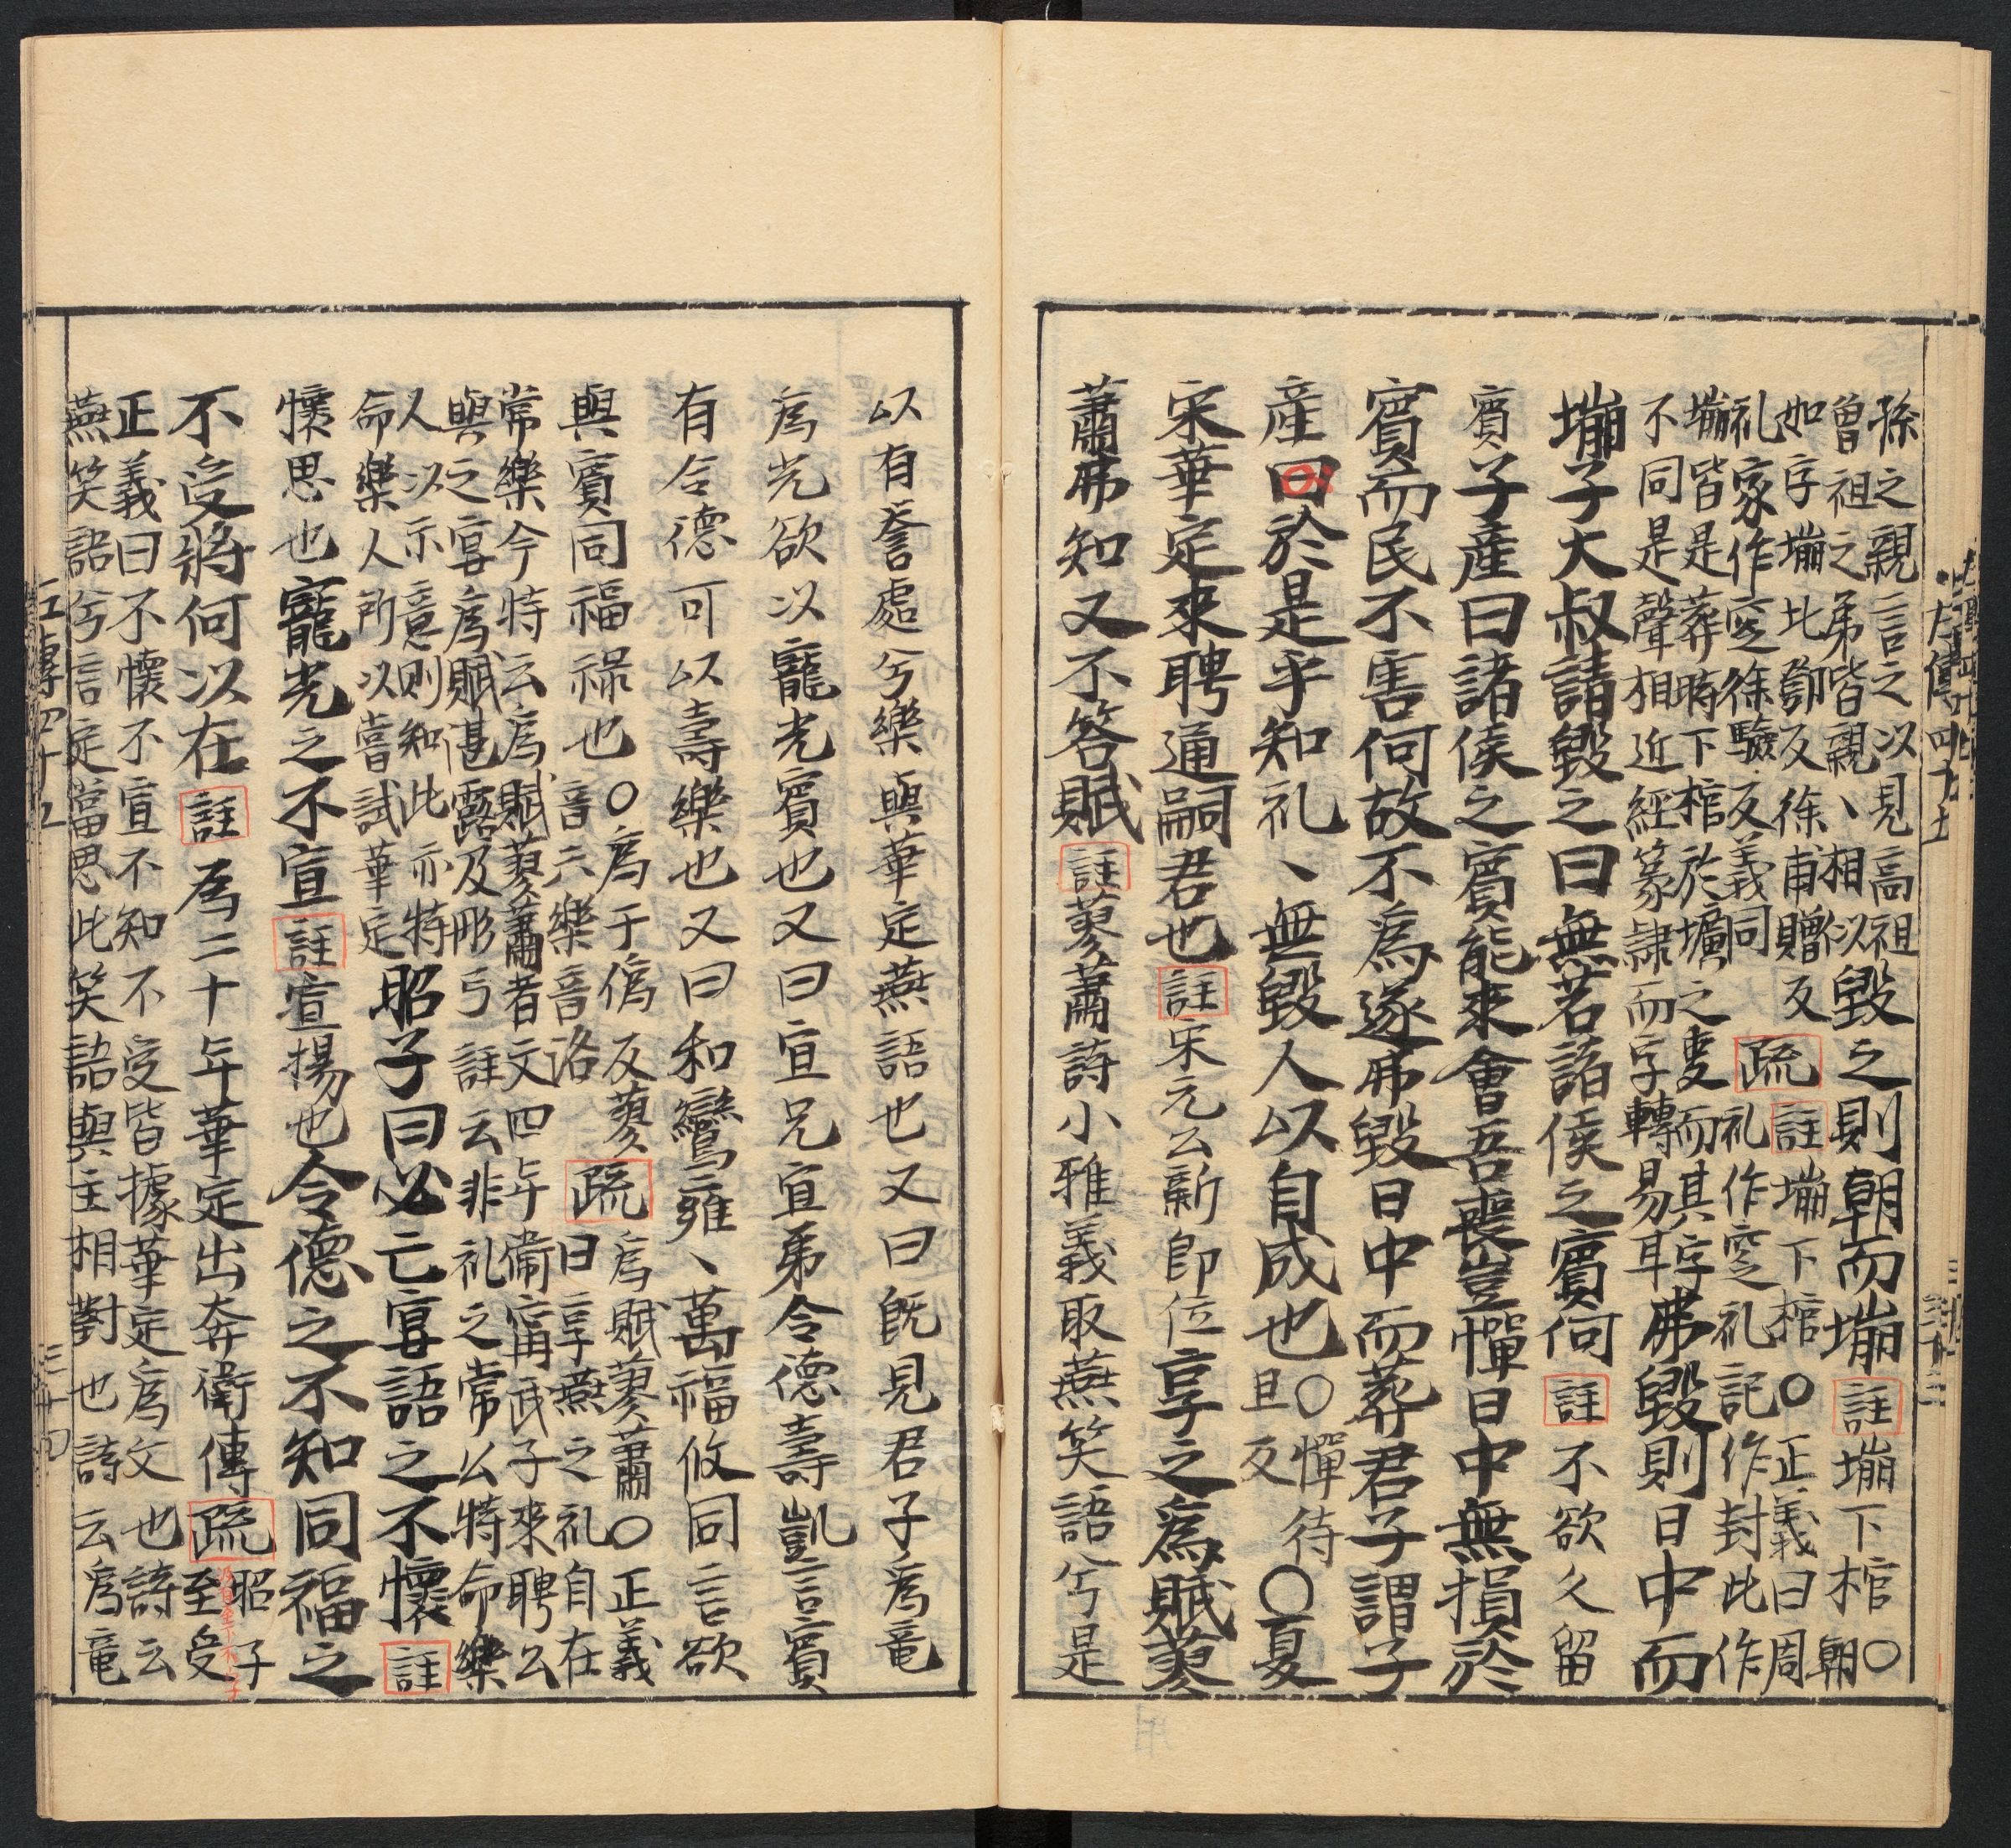 孫之親言之以見高祖
曾祖之弟皆親、相以
毀之則朝而塴
註
塴下棺○朝
如字塴北鄧反徐甫贈反
礼家作窆徐驗反義同
疏
註塴下棺○正義曰周
礼作窆礼記作封此作
塴皆是葬時下棺於壙之事而其字
不同是聲相近經篆隷而字轉易耳
弗毀則日中而
塴子大叔請毀之曰無若諸侯之賓何註不欲久留
賓子產曰諸侯之賓能來會吾喪豈憚日中無損於
賓而民不害何故不爲遂弗毀日中而葬君子謂子
產曰於是乎知礼、無毀人以自成也○憚待旦反○夏
宋華定來聘通嗣君也註宋元公新即位享之爲賦蓼
蕭弗知又不答賦註蓼蕭詩小雅義取燕笑語兮是
以有誉處兮樂與華定燕語也又曰既見君子爲竜
爲光欲以寵光賓也又曰宜兄宜弟令德壽凱言賓
有令德可以壽樂也又曰和鸞雍、萬福攸同言欲
與賓同福祿也○爲于僞反蓼
音六樂音洛
疏
爲賦蓼蕭○正義
曰享燕之礼自在
常樂今特云爲賦蓼蕭者文四年衛甯武子來聘公
與之宴爲賦湛露及彤弓註云非礼之常公特命樂
人以示意則知此亦特
命樂人所以嘗試華定
昭子曰必亡宴語之不懷註
懷思也寵光之不宣註宣揚也令德之不知同福之
不受將何以在註爲二十年華定出奔衛傳疏昭子
至受
正義曰不懷不宣不知不受皆據華定爲文也詩云
燕笑語兮言定當思此笑語與主相對也詩云爲竜